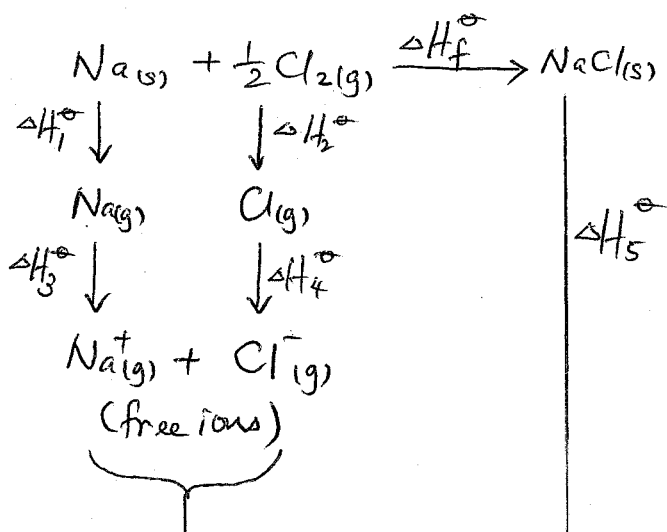 Na(s) + ½Cl₂(g) ΔHf⦵ NaCl(s)
ΔH₁⦵ ΔH₂⦵
Na(g) Cl(g) ΔH₅⦵
ΔH₃⦵ ΔH₄⦵
Na⁺(g) + Cl⁻(g)
(free ions)